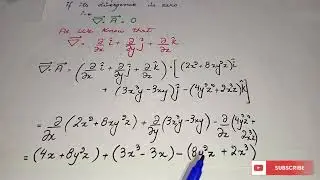 If its divergence is zero
i.e
∇⃗. A⃗ = 0
As we know that
∇⃗ = ∂/∂x î + ∂/∂y ĵ + ∂/∂z k̂
∇⃗. A⃗ = (∂/∂x î + ∂/∂y ĵ + ∂/∂z k̂) . [(2x² + 8xy²z)î
+ (3x³y - 3xy)ĵ - (4y²z² + 2x³z)k̂]
= ∂/∂x (2x² + 8xy²z) + ∂/∂y (3x³y - 3xy) - ∂/∂z (4y²z² + 2x³z)
= (4x + 8y²z) + (3x³ - 3x) - (8y²z + 2x³)
SUBSCRIBE